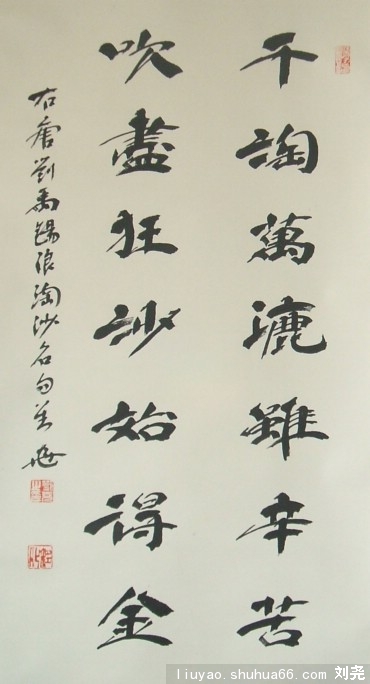 千淘萬漉雖辛苦
吹盡狂沙始得金
右唐劉禹錫浪淘沙名句
liuyao.shuhua66.com 刘尧